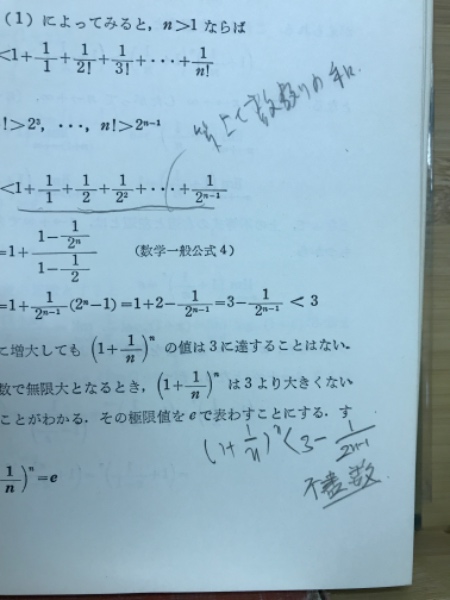 (1) によってみると, n>1 ならば
<1+1/1+1/2!+1/3!+・・・+1/n!
!>2³, ・・・, n!>2ⁿ⁻¹
<1+1/1+1/2+1/2²+・・・+1/2ⁿ⁻¹
=1+(1-1/2ⁿ)/(1-1/2) (数学一般公式4)
=1+1/2ⁿ⁻¹(2ⁿ-1)=1+2-1/2ⁿ⁻¹=3-1/2ⁿ⁻¹ < 3
に増大しても (1+1/n)ⁿ の値は3に達することはない.
数で無限大となるとき, (1+1/n)ⁿ は3より大きくない
ことがわかる. その極限値をeで表わすことにする. す
(1+1/n)ⁿ<3-1/2ⁿ⁻¹
1/n)ⁿ=e